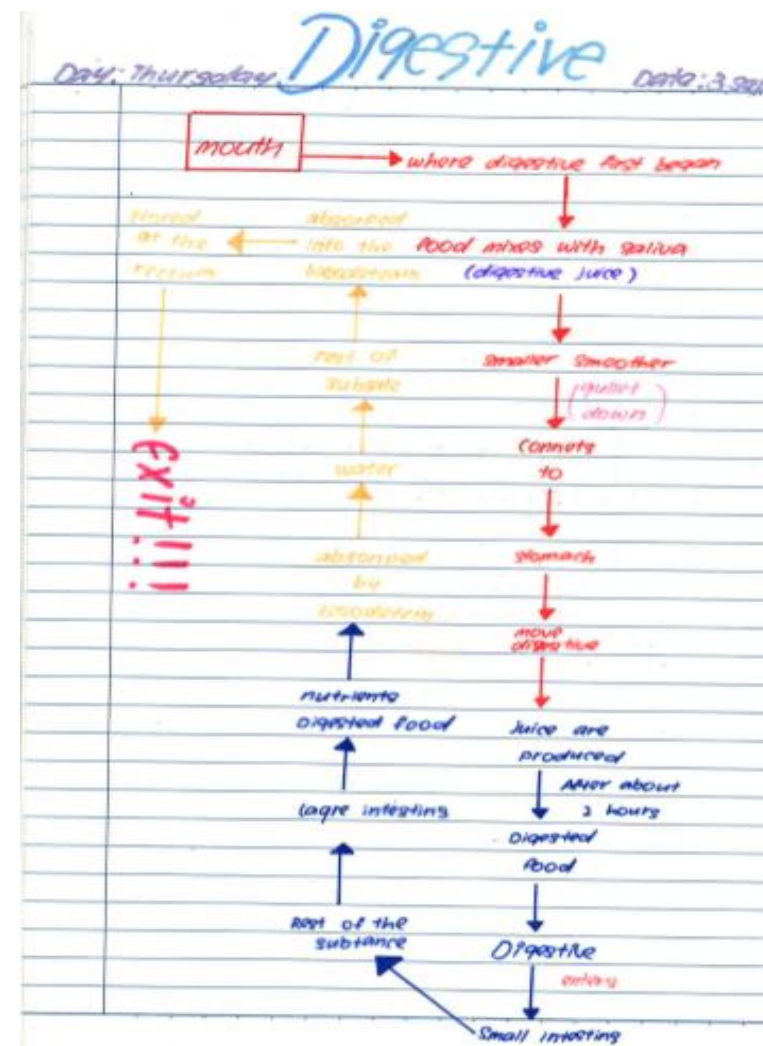 Digestive
Day: Thursday
Date: 3 Sep
mouth
where digestive first began
food mixes with saliva
(digestive juice)
smaller smoother
(gullet
down)
Connets
to
stomach
move
digestive
Juice are
produced
After about
2 hours
Digested
food
Digestive
enters
Small intesting
Rest of the
subtance
lagre intesting
nutriente
Digested food
absorped
by
water
rest of
absorped
into the
at the
rectum
exit!!!